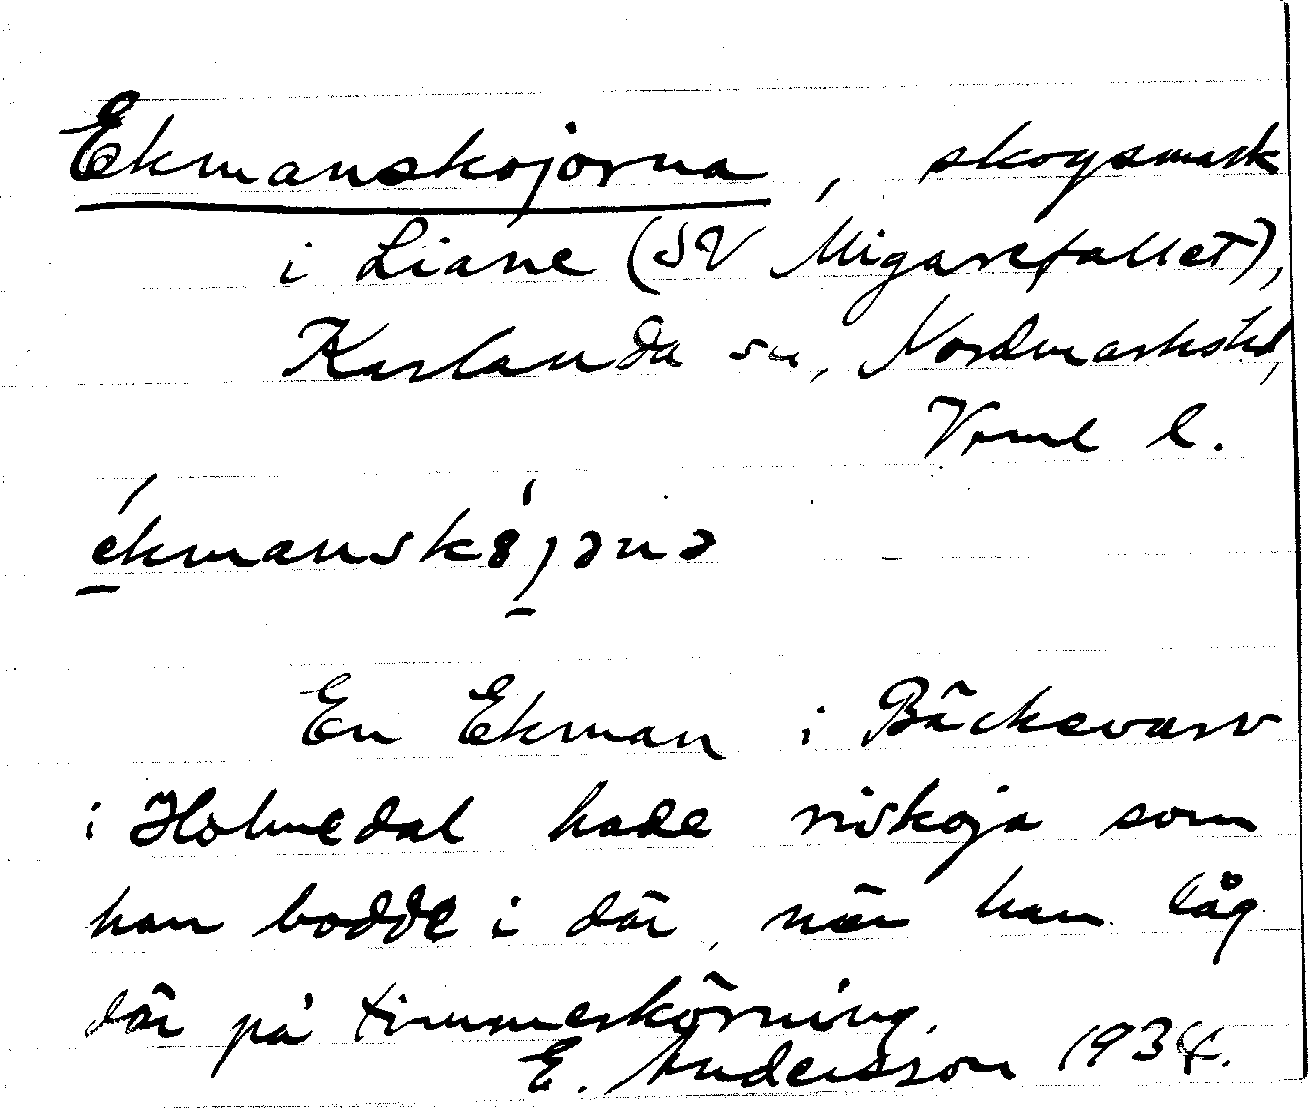 Ekmanskojorna, skogsmark
i Liane (SV Migarefallet),
Karlanda sn, Nordmarks hd,
Vrml l.
ékmanskö́jənə
En Ekman i Bäckevarv
i Holmedal hade riskoja som
han bodde i där, när han låg
där på timmerkörning.
E. Andersson 1934.